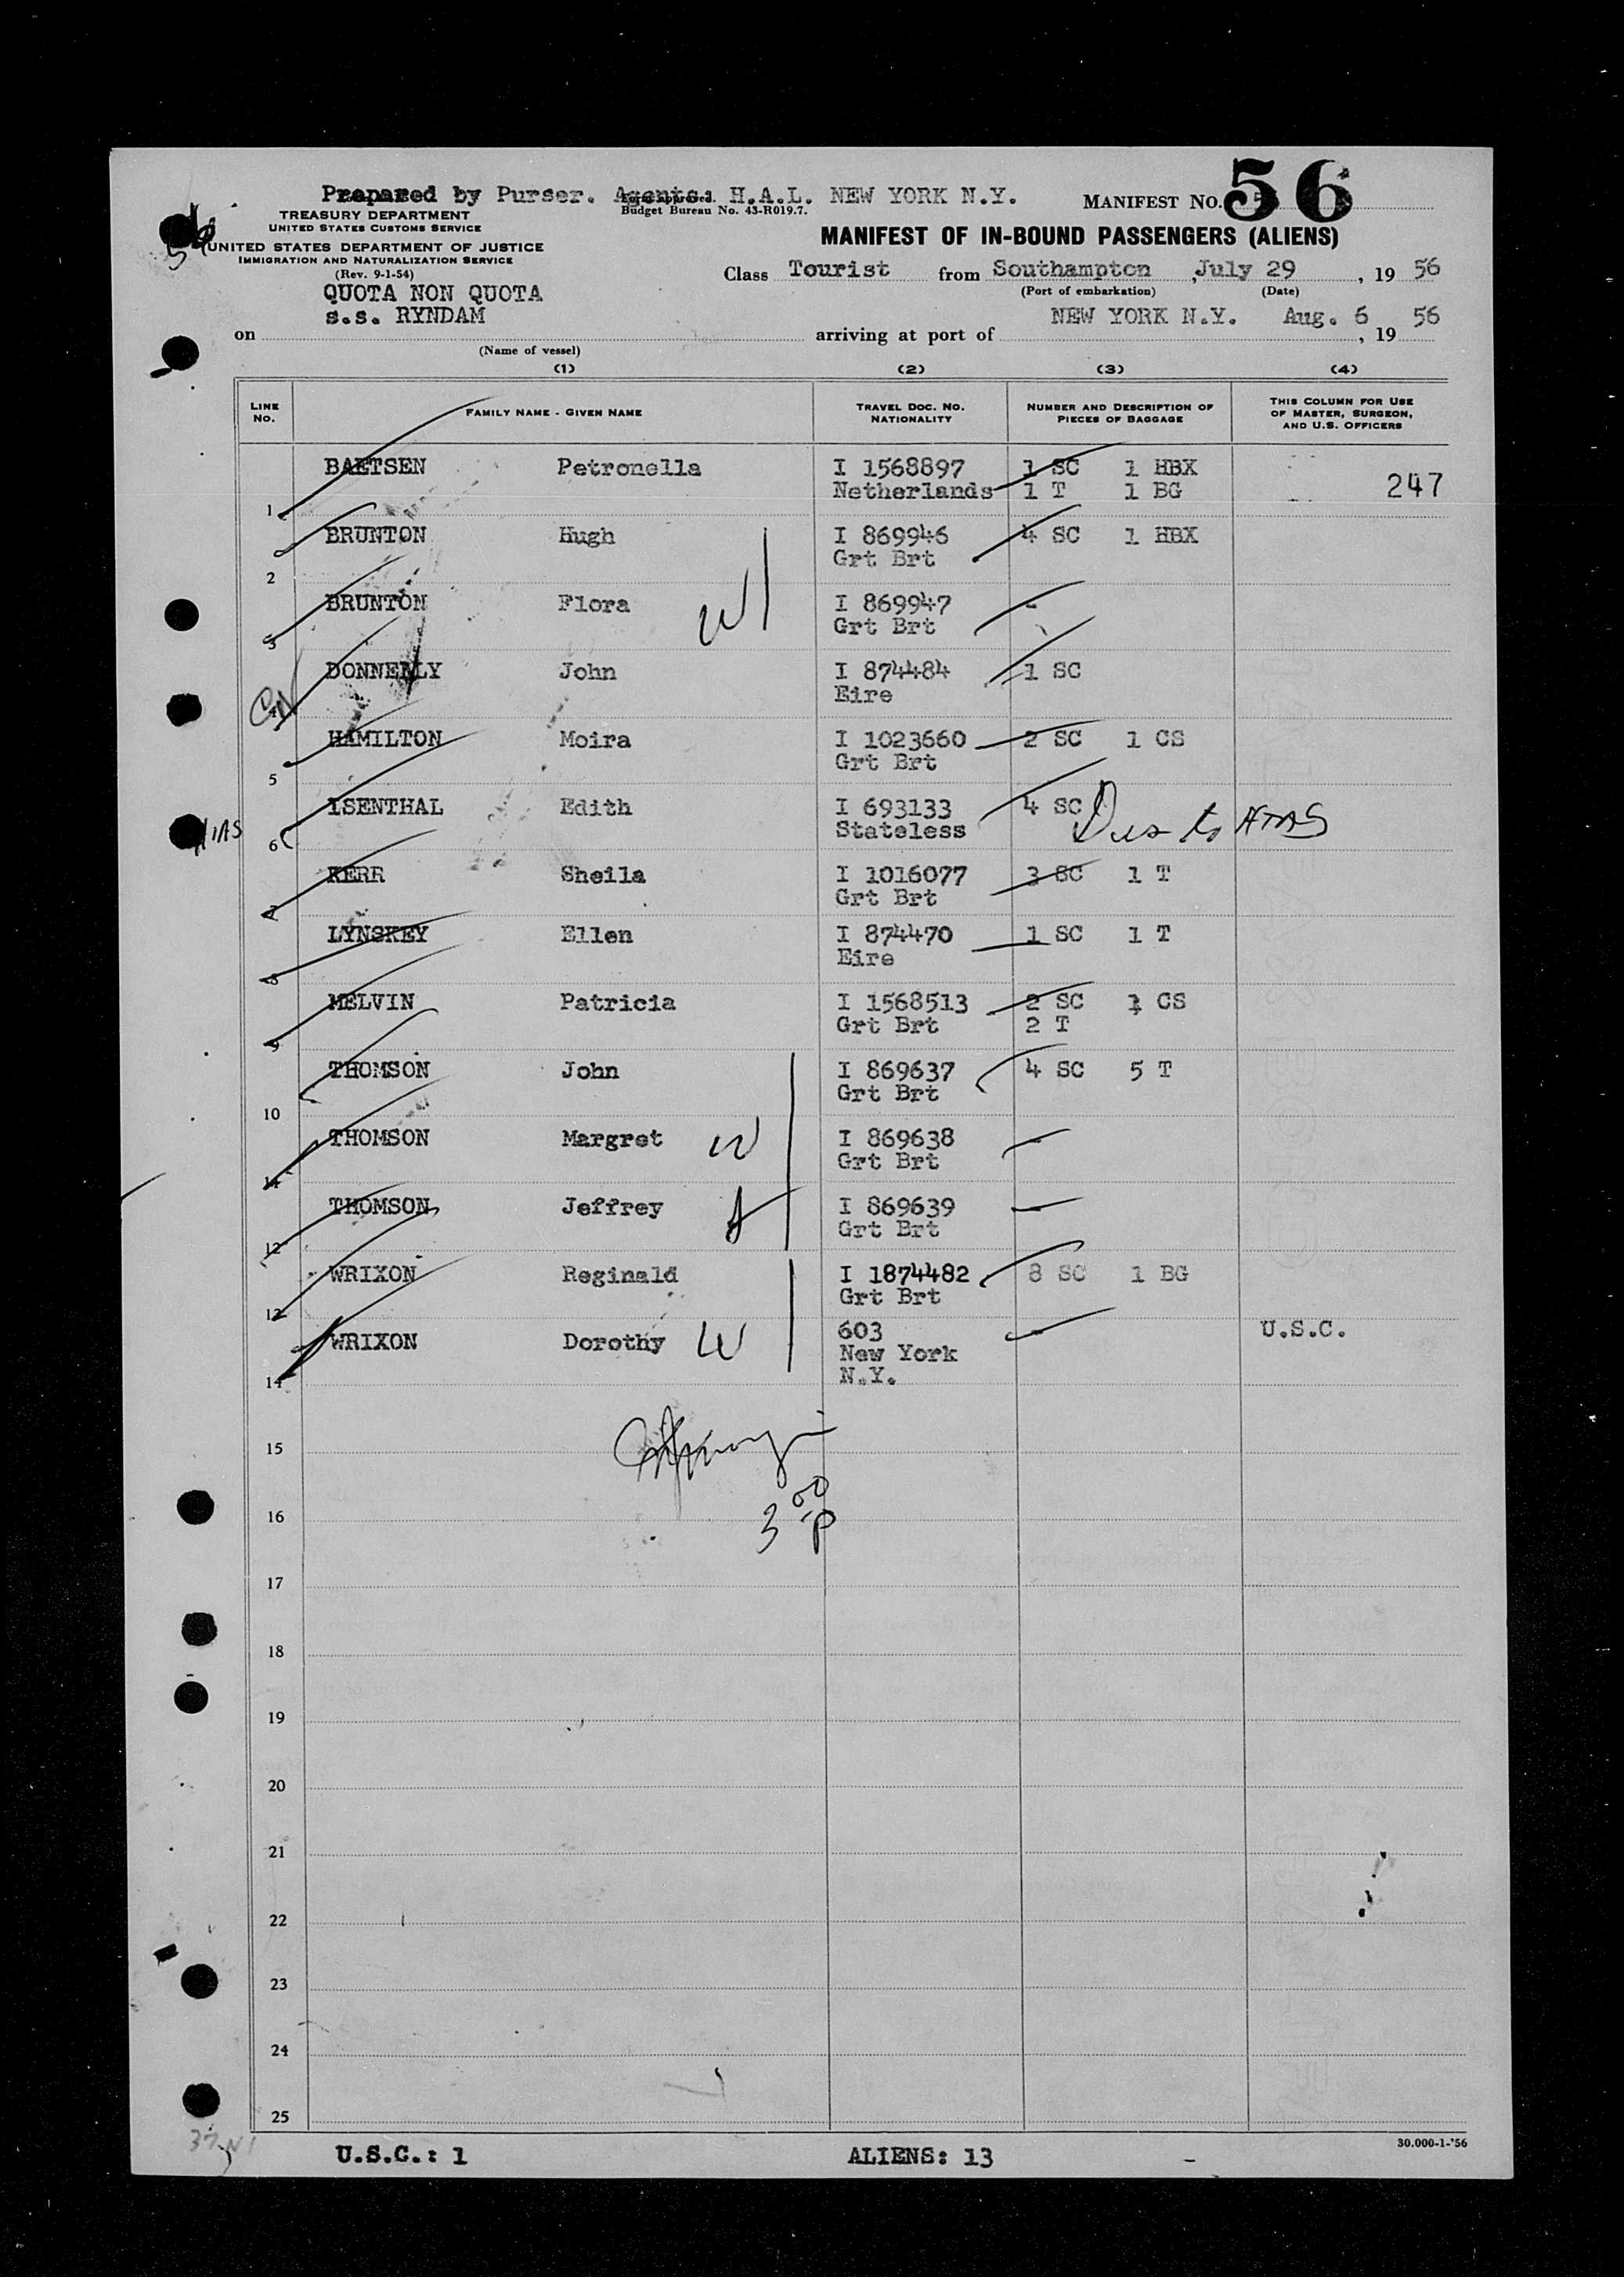 Prepared by Purser. Agents: H.A.L. NEW YORK N.Y.
Form approved.
Budget Bureau No. 43-R019.7.
MANIFEST NO. 56
TREASURY DEPARTMENT
UNITED STATES CUSTOMS SERVICE
UNITED STATES DEPARTMENT OF JUSTICE
IMMIGRATION AND NATURALIZATION SERVICE
(Rev. 9-1-54)
MANIFEST OF IN-BOUND PASSENGERS (ALIENS)
Class Tourist from Southampton, July 29, 19 56
(Port of embarkation) (Date)
QUOTA NON QUOTA
on s.s. RYNDAM arriving at port of NEW YORK N.Y. Aug. 6, 19 56
(Name of vessel)
(1) (2) (3) (4)
LINE NO. FAMILY NAME - GIVEN NAME TRAVEL DOC. NO. NATIONALITY NUMBER AND DESCRIPTION OF PIECES OF BAGGAGE THIS COLUMN FOR USE OF MASTER, SURGEON, AND U.S. OFFICERS
BAETSEN Petronella I 1568897 1 SC 1 HBX
1 Netherlands 1 T 1 BG 247
BRUNTON Hugh I 869946 4 SC 1 HBX
2 Grt Brt
BRUNTON Flora W I 869947 -
3 Grt Brt
DONNERLY John I 874484 1 SC
4 Eire
HAMILTON Moira I 1023660 2 SC 1 CS
5 Grt Brt
ISENTHAL Edith I 693133 4 SC
HIAS 6 Stateless Due to HIAS
KERR Sheila I 1016077 3 SC 1 T
7 Grt Brt
LYNSKEY Ellen I 874470 1 SC 1 T
8 Eire
MELVIN Patricia I 1568513 2 SC 1 CS
9 Grt Brt 2 T
THOMSON John I 869637 4 SC 5 T
10 Grt Brt
THOMSON Margret W I 869638 -
11 Grt Brt
THOMSON Jeffrey I 869639 -
12 Grt Brt
WRIXON Reginald I 1874482 8 SC 1 BG
13 Grt Brt
WRIXON Dorothy W 603 - U.S.C.
New York
14 N.Y.
15
3 00 P
16
17
18
19
20
21
22
23
24
25
30.000-1-'56
U.S.C.: 1 ALIENS: 13